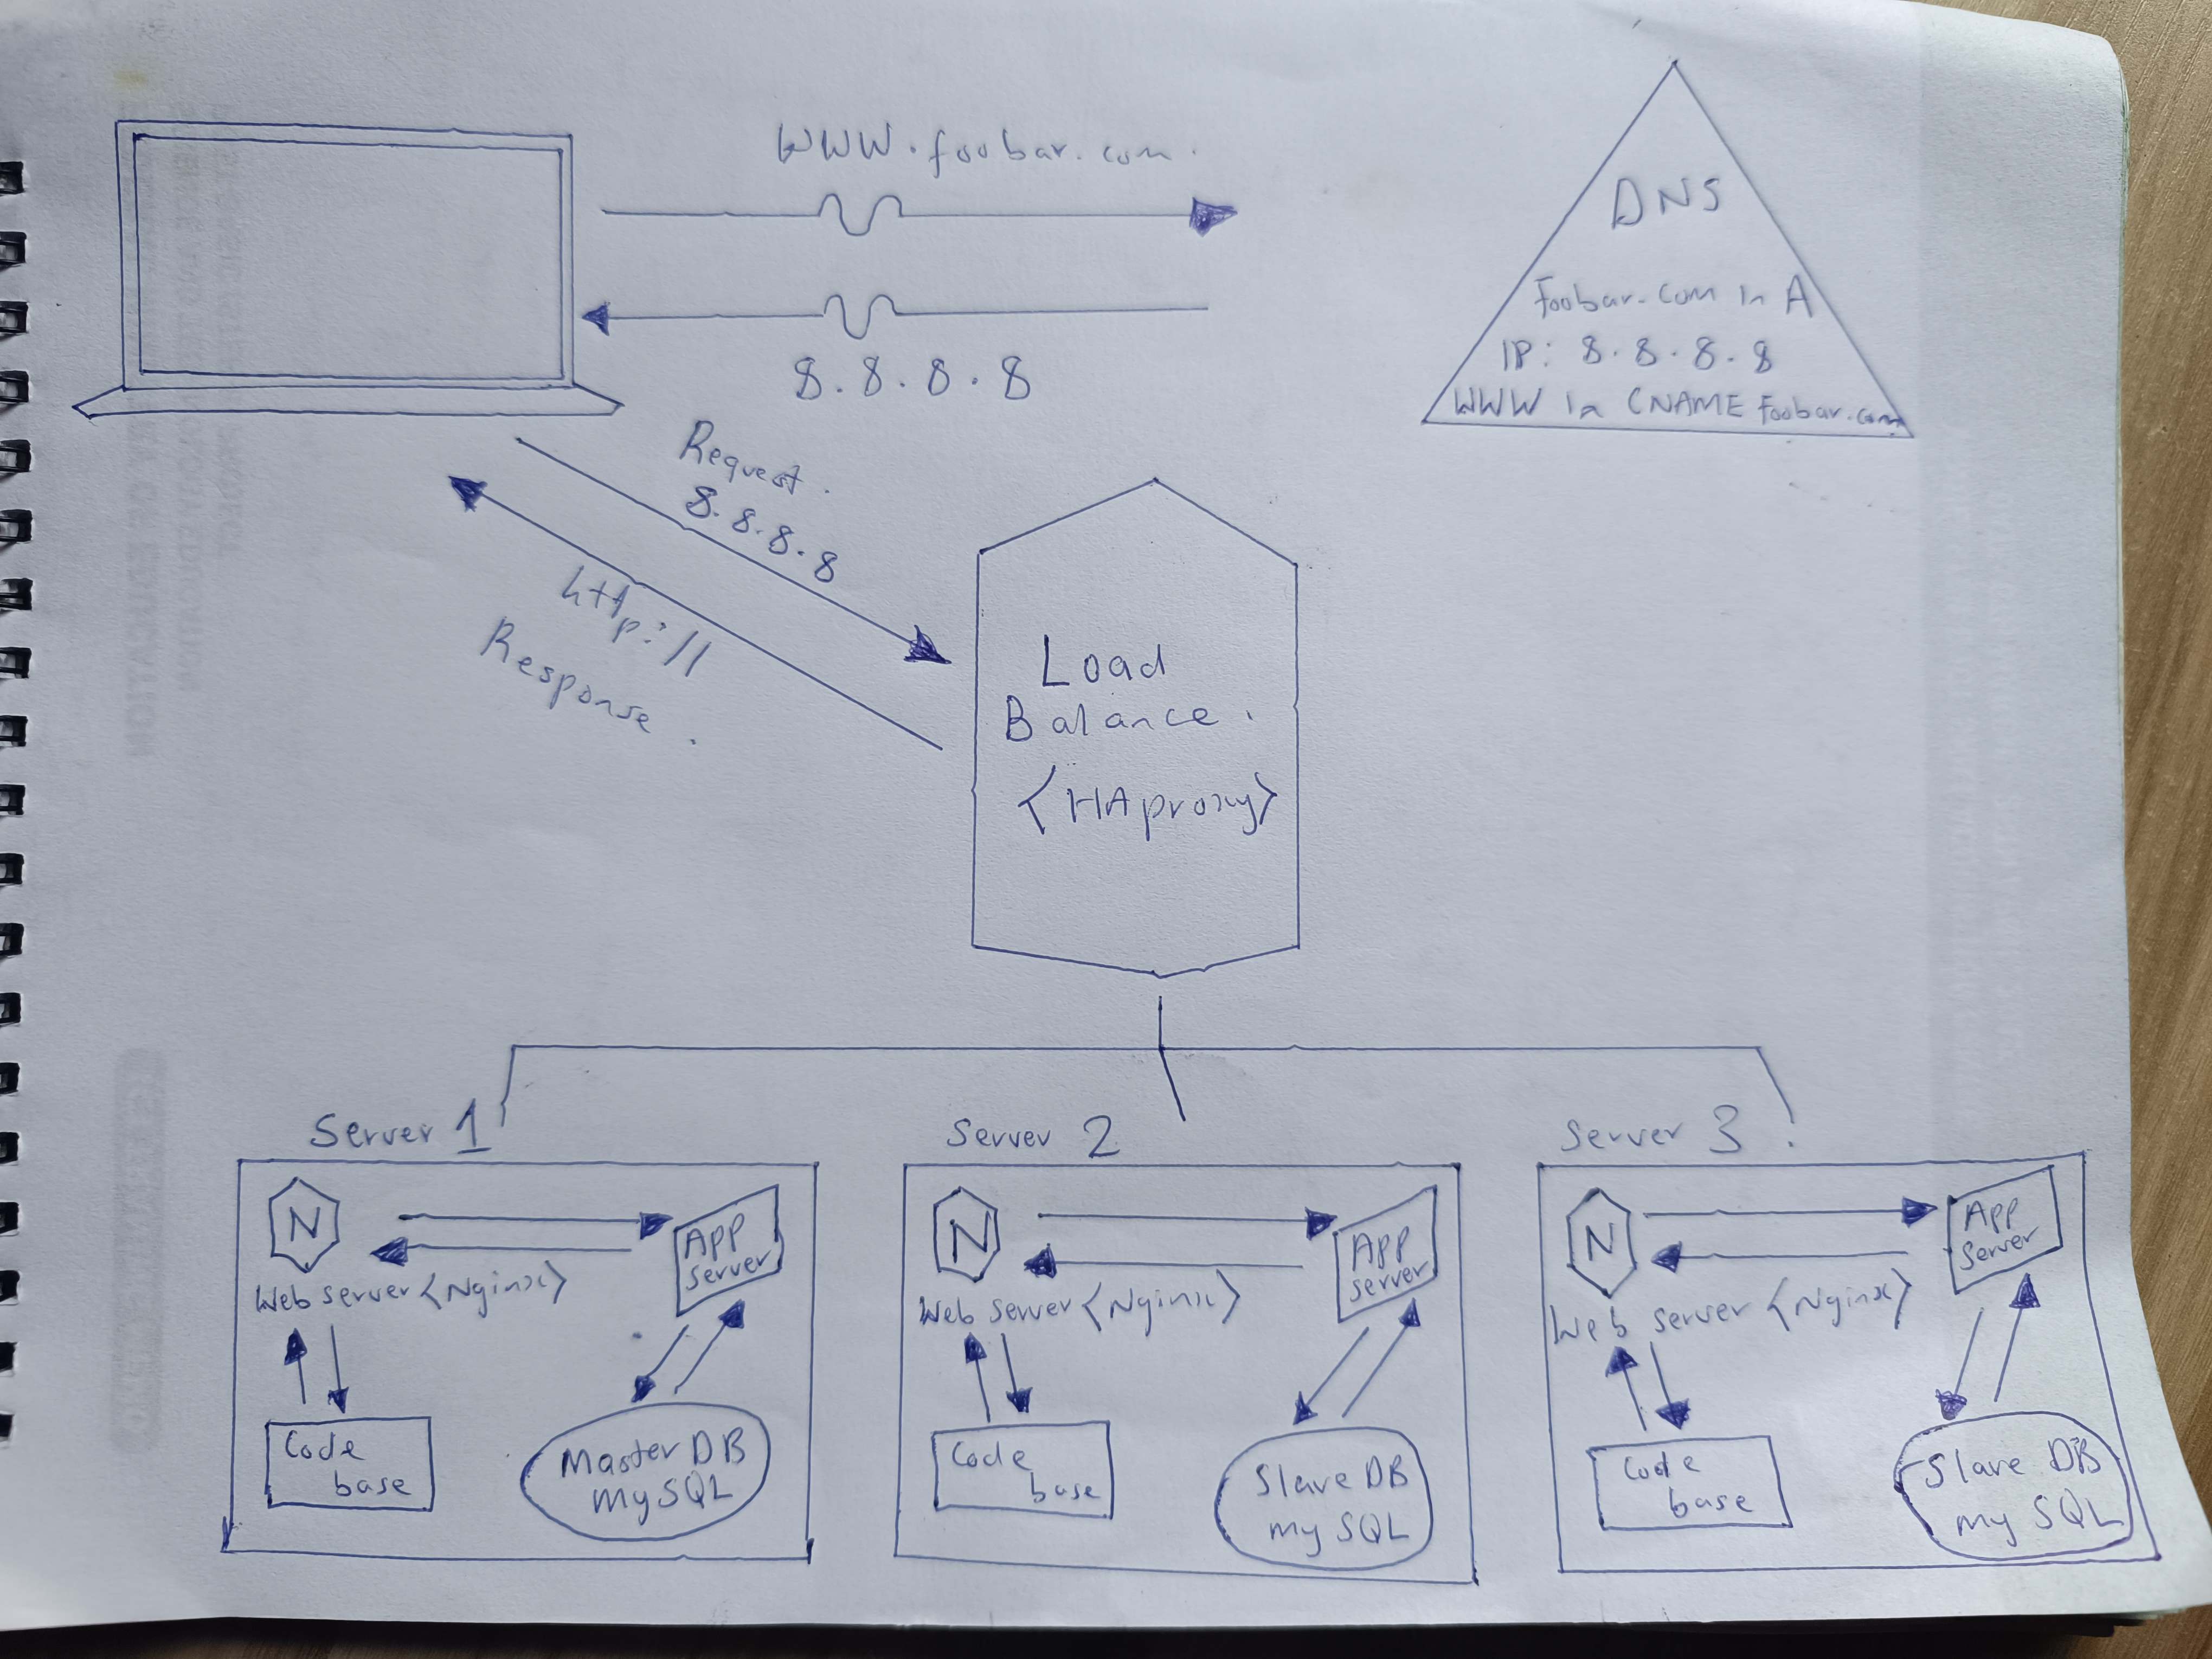 www.foobar.com.
8.8.8.8
DNS
foobar.com in A
IP: 8.8.8.8
WWW in CNAME foobar.com
Request.
8.8.8.8
http://
Response.
Load
Balance.
<HAproxy>
Server 1
N
App
server
Web server <Nginx>
Code
base
Master DB
mySQL
Server 2
N
App
server
Web server <Nginx>
Code
base
Slave DB
my SQL
Server 3
N
App
server
Web server <Nginx>
Code
base
Slave DB
my SQL